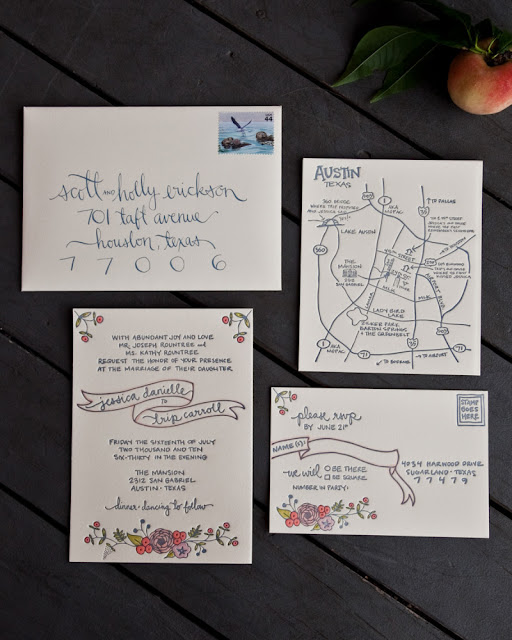 44
scott and holly erickson
701 taft avenue
houston, texas
77006
AUSTIN
TEXAS
↑TO DALLAS
1
AKA
MOPAC
35
LAKE AUSTIN
360
THE MANSION
2312
SAN GABRIEL
MLK
MLK
LADY BIRD
LAKE
ZILKER PARK,
BARTON SPRINGS
& THE GREENBELT
1
AKA
MOPAC
35
71
71
→TO AIRPORT
WITH ABUNDANT JOY AND LOVE
MR. JOSEPH ROUNTREE and
MS. KATHY ROUNTREE
REQUEST THE HONOR OF YOUR PRESENCE
AT THE MARRIAGE OF THEIR DAUGHTER
jessica danielle
TO
trip carroll
FRIDAY THE SIXTEENTH OF JULY
TWO THOUSAND AND TEN
SIX-THIRTY IN THE EVENING
THE MANSION
2312 SAN GABRIEL
AUSTIN · TEXAS
dinner + dancing to follow
please rsvp
BY JUNE 21st
STAMP
GOES
HERE
NAME(S):
we will
BE THERE
BE SQUARE
NUMBER IN PARTY:
4034 HARWOOD DRIVE
SUGARLAND · TEXAS
77479